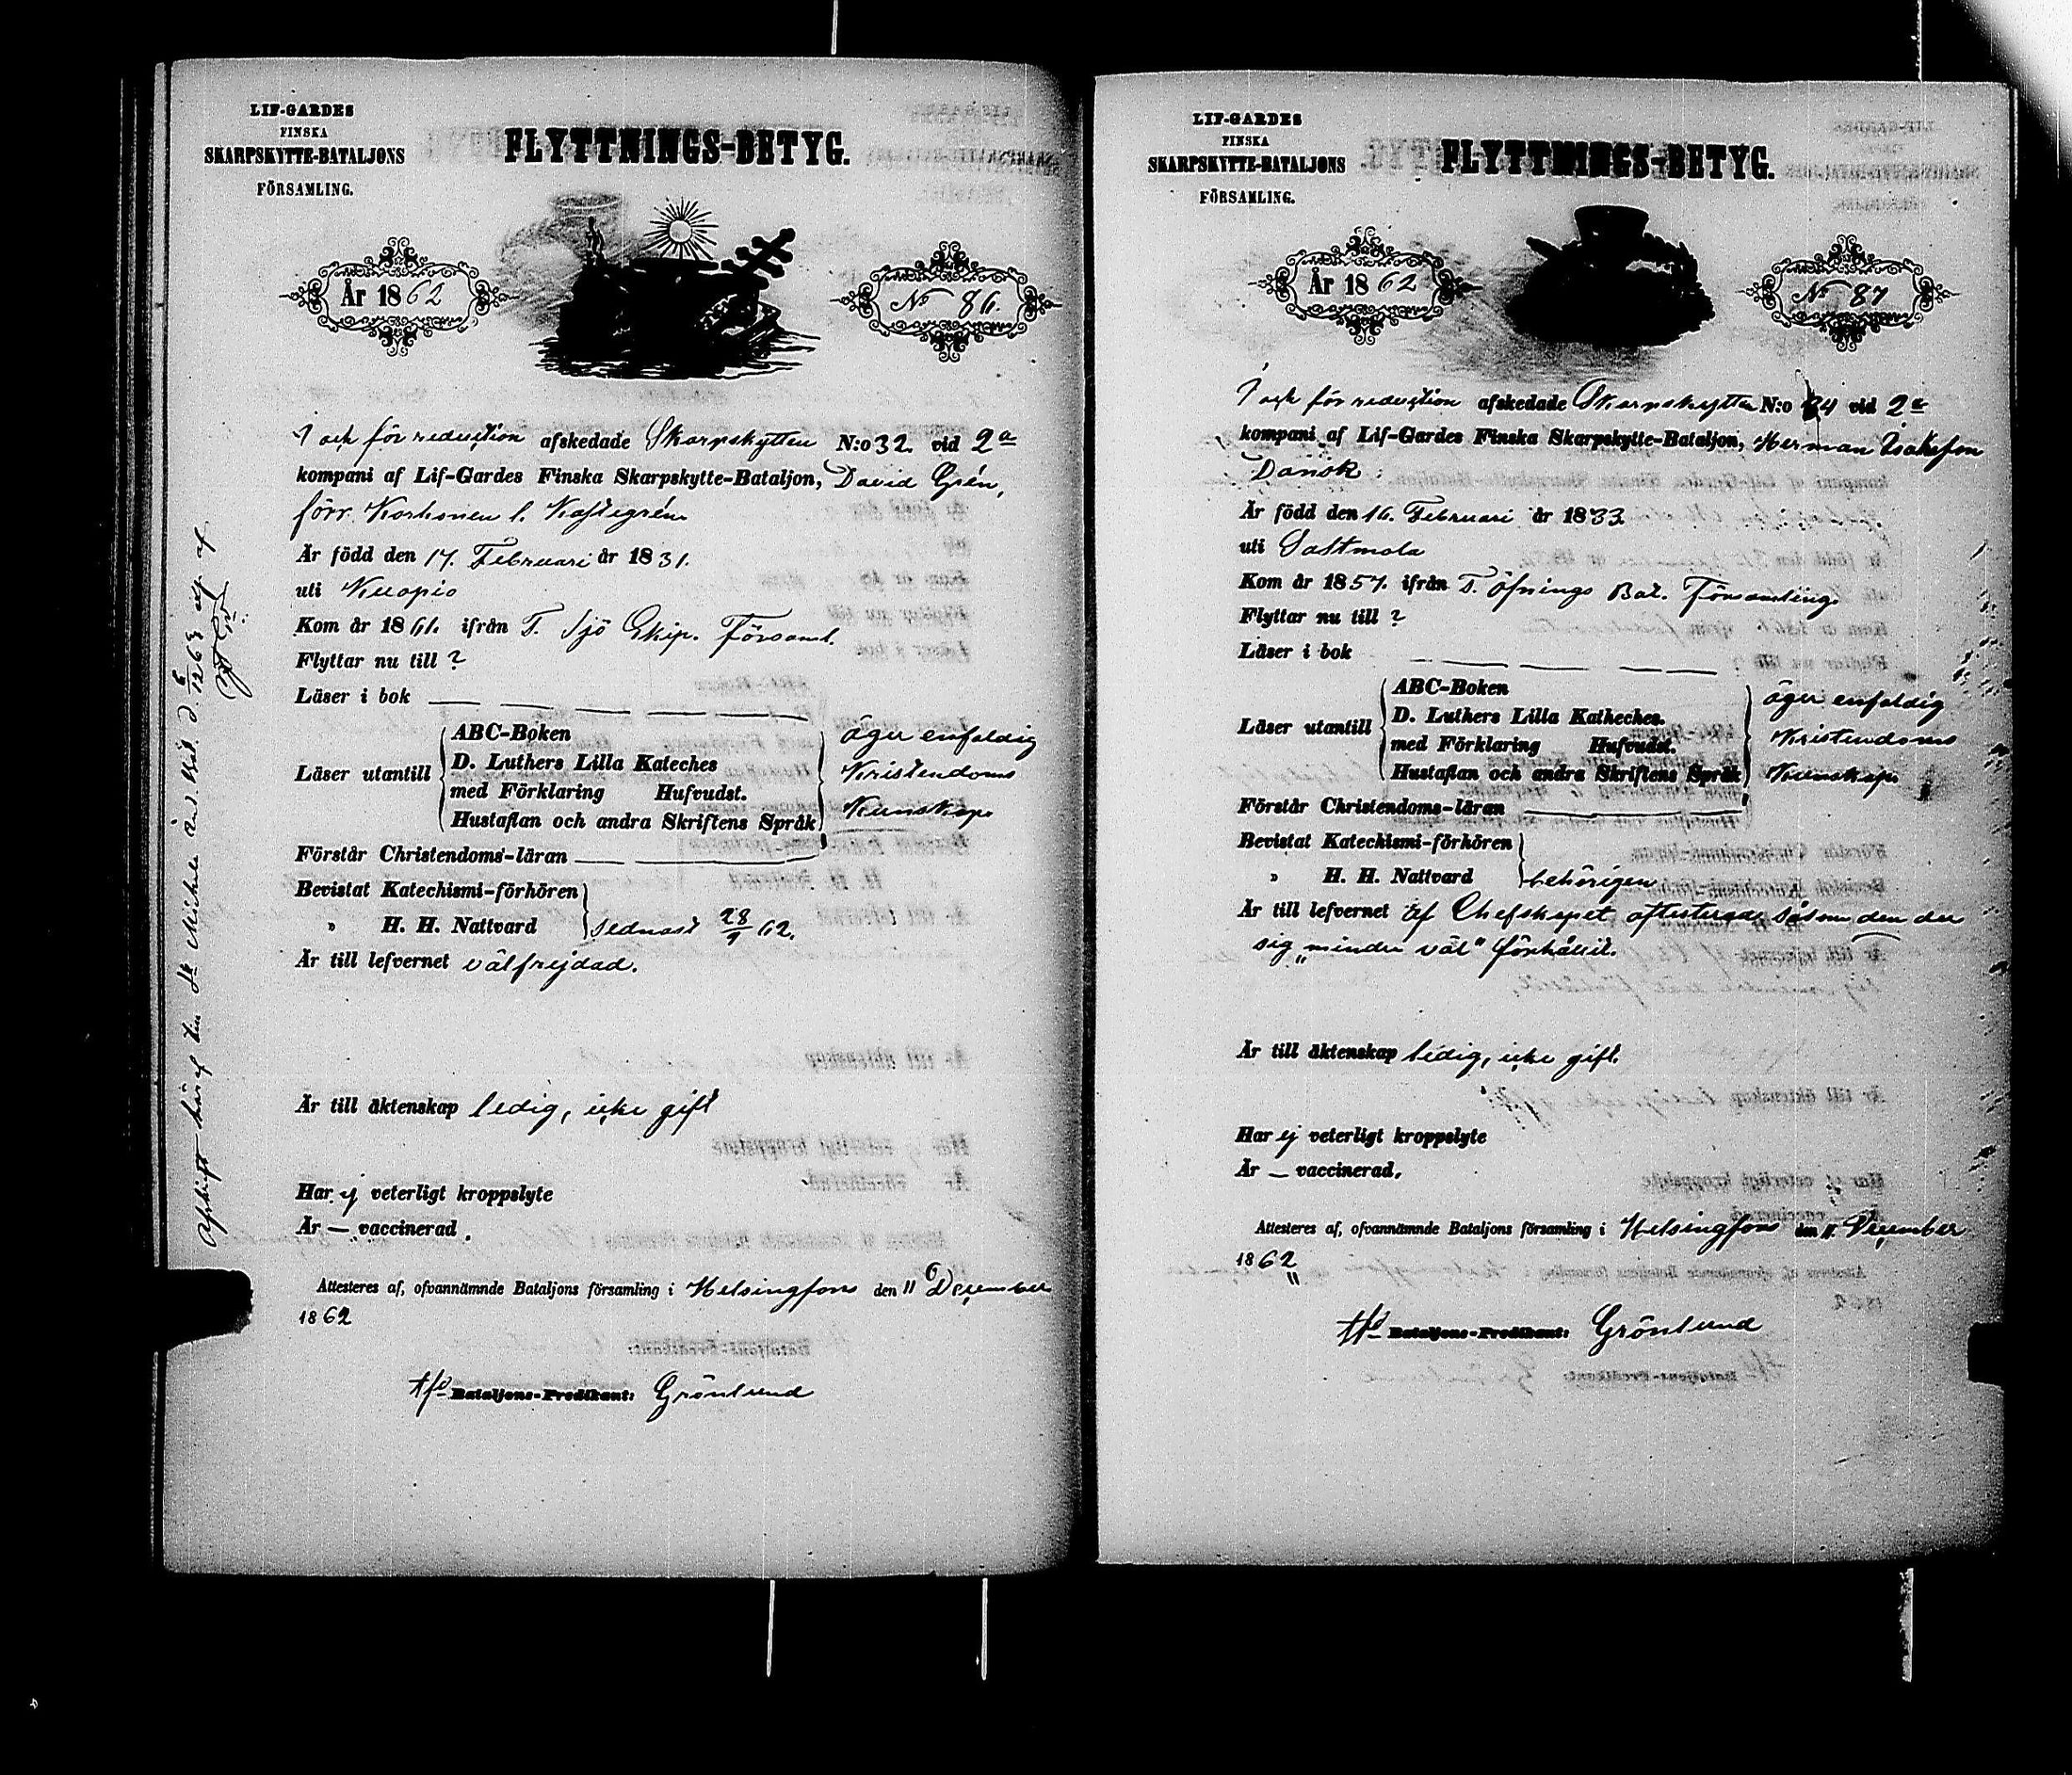 LIF-GARDES
FINSKA
SKARPSKYTTE-BATALJONS
FÖRSAMLING.
FLYTTNINGS-BETYG.
År 1862
No 86.
I och för reduction afskedade Skarpskytten N:o 32. vid 2a
kompani af Lif-Gardes Finska Skarpskytte-Bataljon, David Grén,
förr Korhonen l. Kastegrén
Är född den 17. Februari år 1831.
uti Kuopio
Kom år 1861. ifrån F. Sjö Ekip. Församl.
Flyttar nu till ?
Läser i bok
Läser utantill
ABC-Boken
D. Luthers Lilla Kateches
med Förklaring Hufvudst.
Hustaflan och andra Skriftens Språk
äger enfaldig
Kristendoms
Kunskap.
Förstår Christendoms-läran
Bevistat Katechismi-förhören
" H. H. Nattvard
sednast 28/9 62.
Är till lefvernet välfrejdad.
Är till äktenskap ledig, icke gift
Har ej veterligt kroppslyte
Är — vaccinerad.
Attesteres af, ofvannämnde Bataljons församling i Helsingfors den 11 December
1862
Bataljons-Predikant: Grönlund
Afskrift häraf
LIF-GARDES
FINSKA
SKARPSKYTTE-BATALJONS
FÖRSAMLING.
FLYTTNINGS-BETYG.
År 1862
No 87
I och för reduction afskedade Skarpskytten N:o 34 vid 2a
kompani af Lif-Gardes Finska Skarpskytte-Bataljon, Herman Isaksson
Dansk.
Är född den 16. Februari år 1833
uti Sastmola
Kom år 1857. ifrån F. Öfnings Bat. Församling.
Flyttar nu till ?
Läser i bok
Läser utantill
ABC-Boken
D. Luthers Lilla Katheches.
med Förklaring Hufvudst.
Hustaflan och andra Skriftens Språk
äger enfaldig
Kristendoms
Kunskap.
Förstår Christendoms-läran
Bevistat Katechismi-förhören
" H. H. Nattvard
behörigen
Är till lefvernet af Chefskapet attesterad såsom den der
sig „mindre väl" förhållit.
Är till äktenskap ledig, icke gift.
Har ej veterligt kroppslyte
Är — vaccinerad.
Attesteres af, ofvannämnde Bataljons församling i Helsingfors den 11. December
1862
Bataljons-Predikant: Grönlund